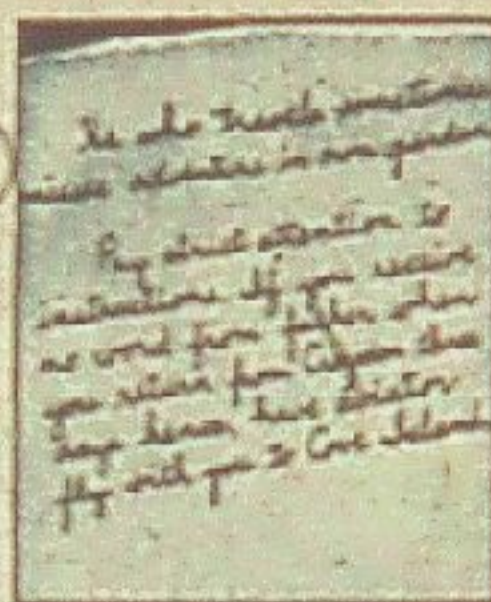 He who travels sometimes
misses adventure in own garden
Pay strict attention to
instructions. If you receive
no word from father when
you return from Canyon three
days hence, have aviator
fly with you to Cove Island